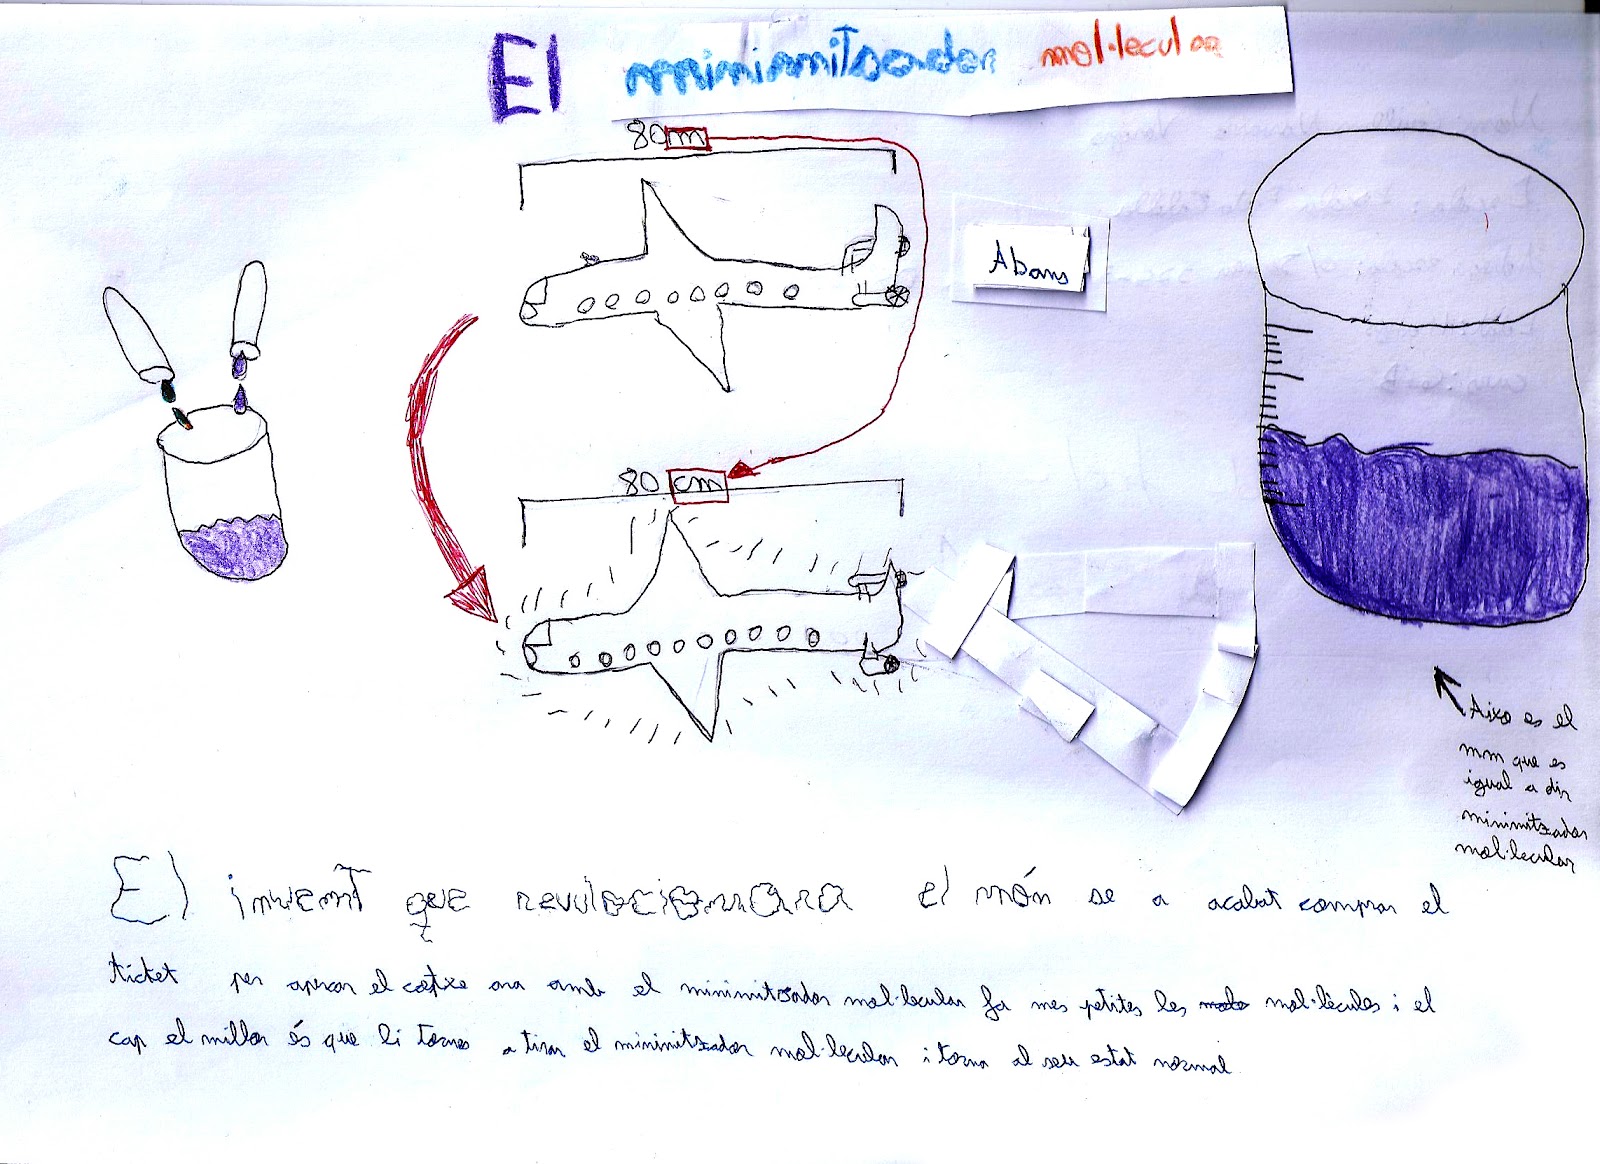 El minimitzador mol·lecular
80m
Abans
80 cm
Aixo es el
mm que es
igual a dir
minimitzador
mol·lecular
El invent que revulocionara el món se a acabat comprar el
ticket per aparcar el cotxe ara amb el minimitzador mol·lecular fa mes petites les mol·lècules i el
cap el millor és que li tornes a tirar el minimitzador mol·lecular i torna al seu estat normal